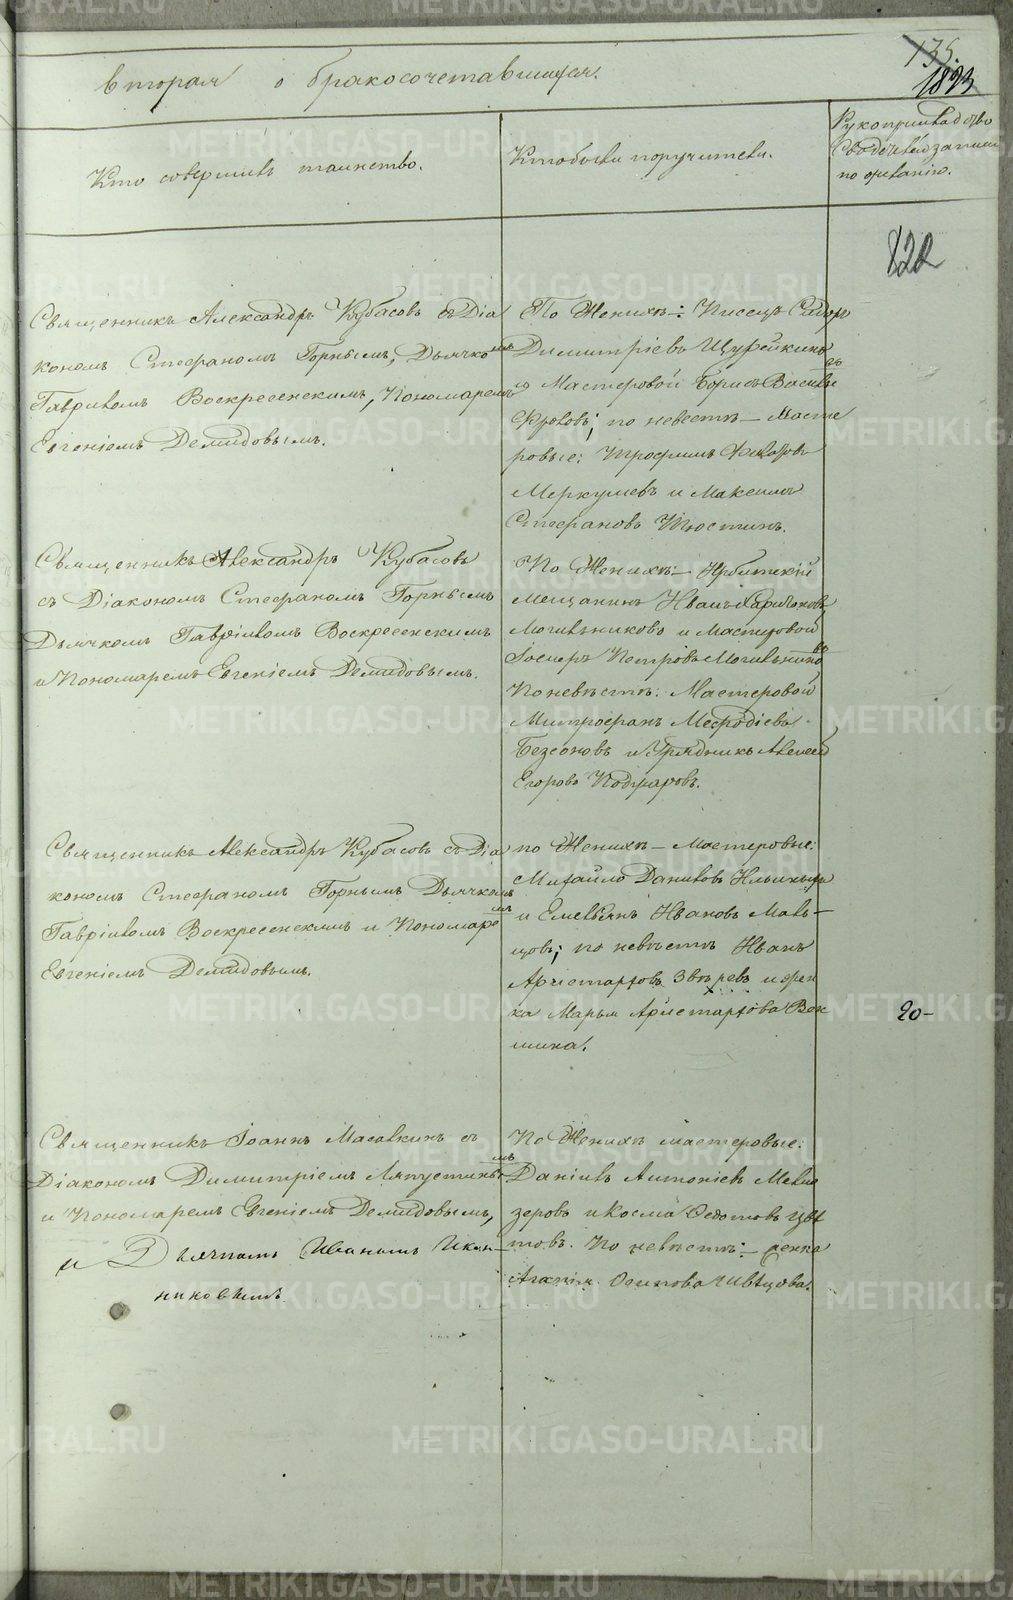 135.
1823
вторая о бракосочетавшихся.
Кто совершилъ таинство.
Кто были поручители.
Рукоприкладство
свидетелей записи
по желанію.
122
Священникъ Александръ Кубасовъ съ Діа
кономъ Стефаномъ Горнымъ, Дьячкомъ
Гавріиломъ Воскресенскимъ, Пономаремъ
Евгеніемъ Демидовымъ.
По Женихѣ: Писецъ Сидоръ
Димитріевъ Щурейкинъ
и Мастеровой Борисъ Васильевъ
Фроловъ; по невестѣ – Масте
ровые: Трофимъ
Меркушевъ и Максимъ
Стефановъ Тюстинъ.
Священникъ Александръ Кубасовъ
съ Діакономъ Стефаномъ Горнымъ
Дьячкомъ Гавріиломъ Воскресенскимъ
и Пономаремъ Евгеніемъ Демидовымъ.
По Женихѣ: – Ирбитскій
Мещанинъ Иванъ Харитоновъ
Могильниковъ и Мастеровой
Іосифъ Петровъ Могильниковъ
По невѣстѣ: Мастеровой
Митрофанъ Мефодіевъ
Безсоновъ и Урядникъ Алексей
Егоровъ
Священникъ Александръ Кубасовъ съ Діа
кономъ Стефаномъ Горнымъ Дьячкомъ
Гавріиломъ Воскресенскимъ и Пономаремъ
Евгеніемъ Демидовымъ.
по Женихѣ – Мастеровые:
Михайло Даниловъ Ильиныхъ
и Емельянъ Ивановъ Маль–
цовъ; по невѣстѣ Иванъ
Аристарховъ Звѣревъ и жен
ка Марья Аристархова Вок
шина.
20–
Священникъ Іоаннъ Масалкинъ съ
Діакономъ Димитріемъ Ляпустинымъ
и Пономаремъ Евгеніемъ Демидовымъ,
и Дьячкомъ Иваномъ Икон–
никовымъ
По Женихѣ мастеровые:
Даніилъ Антоніевъ Мелко
зеровъ и Косма Федотовъ Цвѣ
товъ. По невѣстѣ: – женка
Агапія Осипова Швѣцова.
METRIKI.GASO-URAL.RU